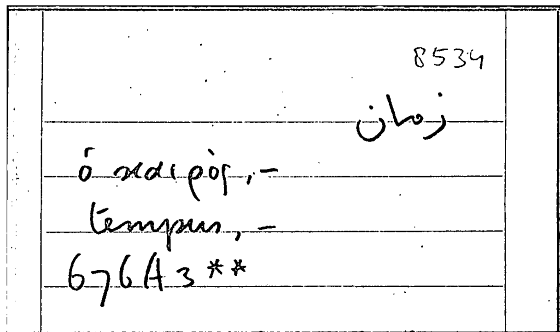 8534
زمان
ὁ καιρὸς,-
tempus,-
676A3**